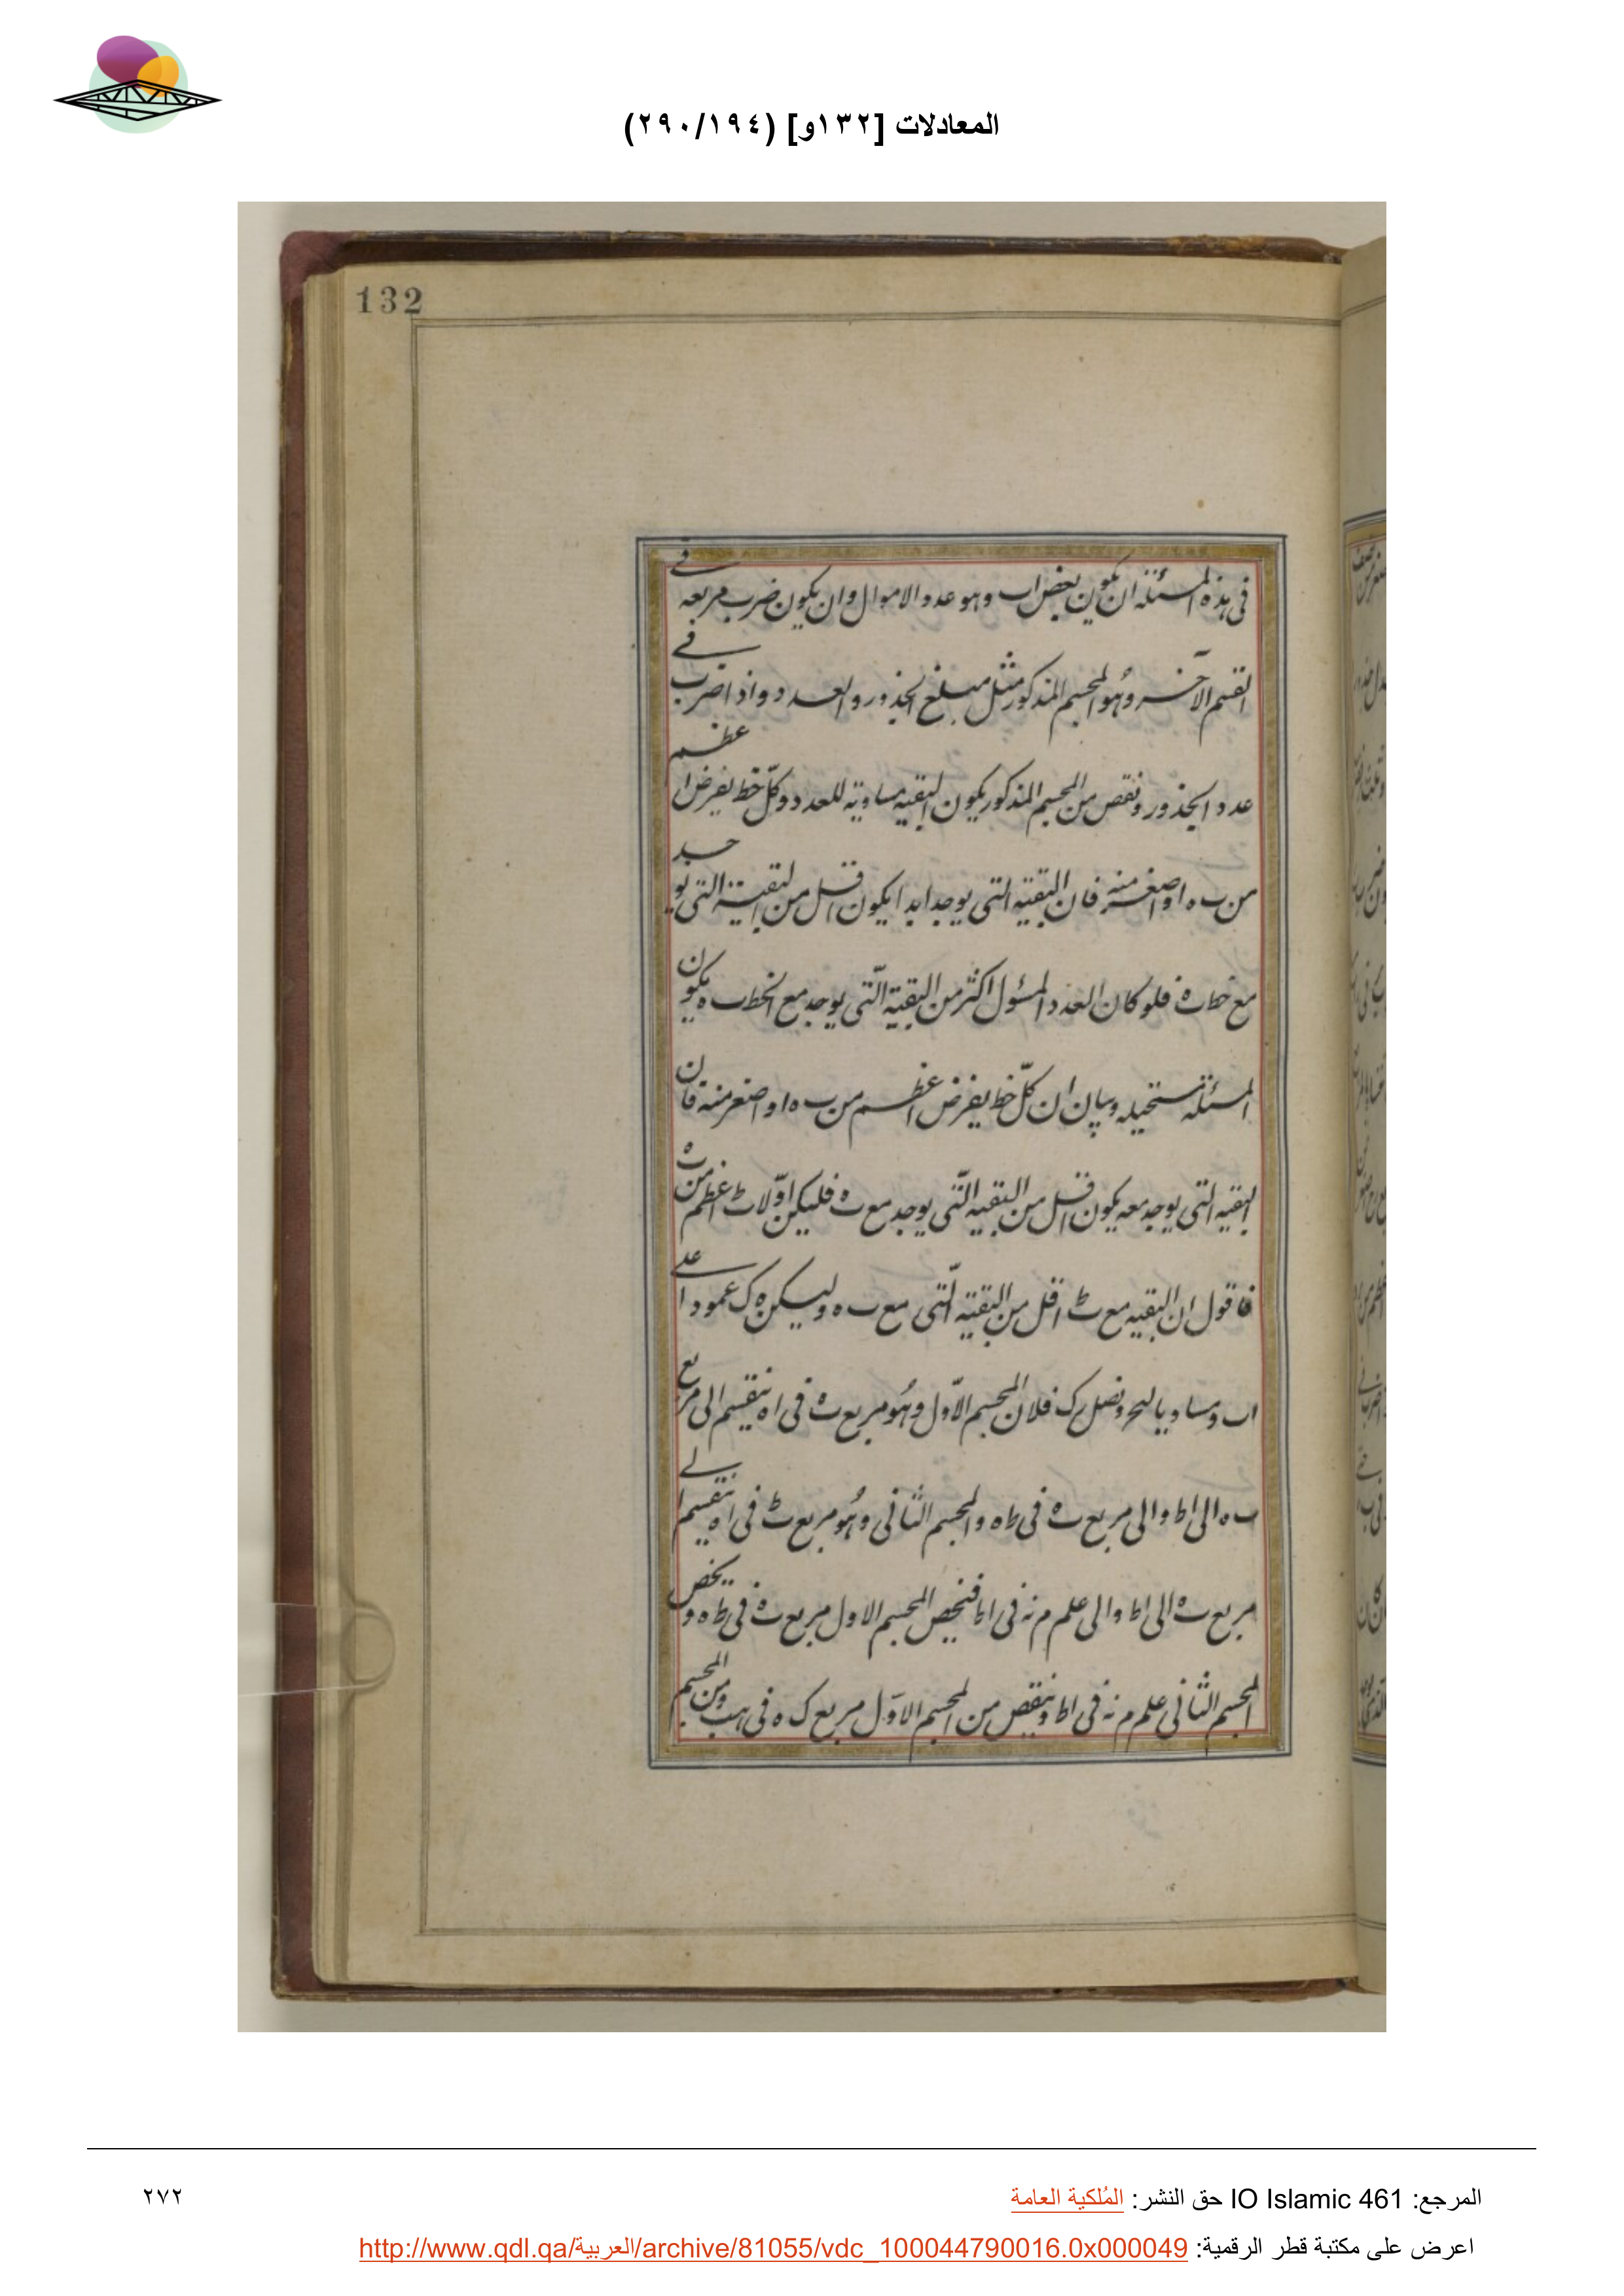 المعادلات [١٣٢و] (٢٩٠/١٩٤)
132
فى هذه المسئلة ان يكون بعض اب وهو عدد الاموال وان يكون ضرب مربعه فى
القسم الآخر وهو المجسم المذكور مثل مبلغ الجذور والعدد واذا ضرب فى
عدد الجذور ونقص من المجسم المذكور يكون البقية مساوية للعدد وكل خط يفرض اعظم
من ب ه او اصغر منه فان البقية التى يوجد ابدا يكون اقل من البقية التى يوجد
مع خط ب ه فلو كان العدد المسئول اكثر من البقية التى يوجد مع الخط ب ه يكون
المسئلة مستحيله وبيان ان كل خط يفرض اعظم من ب ه او اصغر منه فان
البقية التى يوجد معه يكون اقل من البقية التى يوجد مع ب ه فليكن اولا ب ط اعظم من ب ه
فاقول ان البقية مع ب ط اقل من البقية التى مع ب ه وليكن ه ك عمودا على
اب ومساويا لح ونصل ب ك فلان المجسم الاول وهو مربع ب ه فى ا ه ينقسم الى مربع
ب ه الى ا ط والى مربع ب ه فى ط ه والمجسم الثانى وهو مربع ب ط فى ا ه ينقسم الى
مربع ب ه الى ا ط والى علم م نه فى ا ط فيخص المجسم الاول مربع ب ه فى ط ه ويخص
المجسم الثانى علم م نه فى ا ط وينقص من المجسم الاول مربع ك ه فى ه ب ومن المجسم
المرجع: IO Islamic 461 حق النشر: المُلكية العامة
٢٧٢
اعرض على مكتبة قطر الرقمية: http://www.qdl.qa/العربية/archive/81055/vdc_100044790016.0x000049